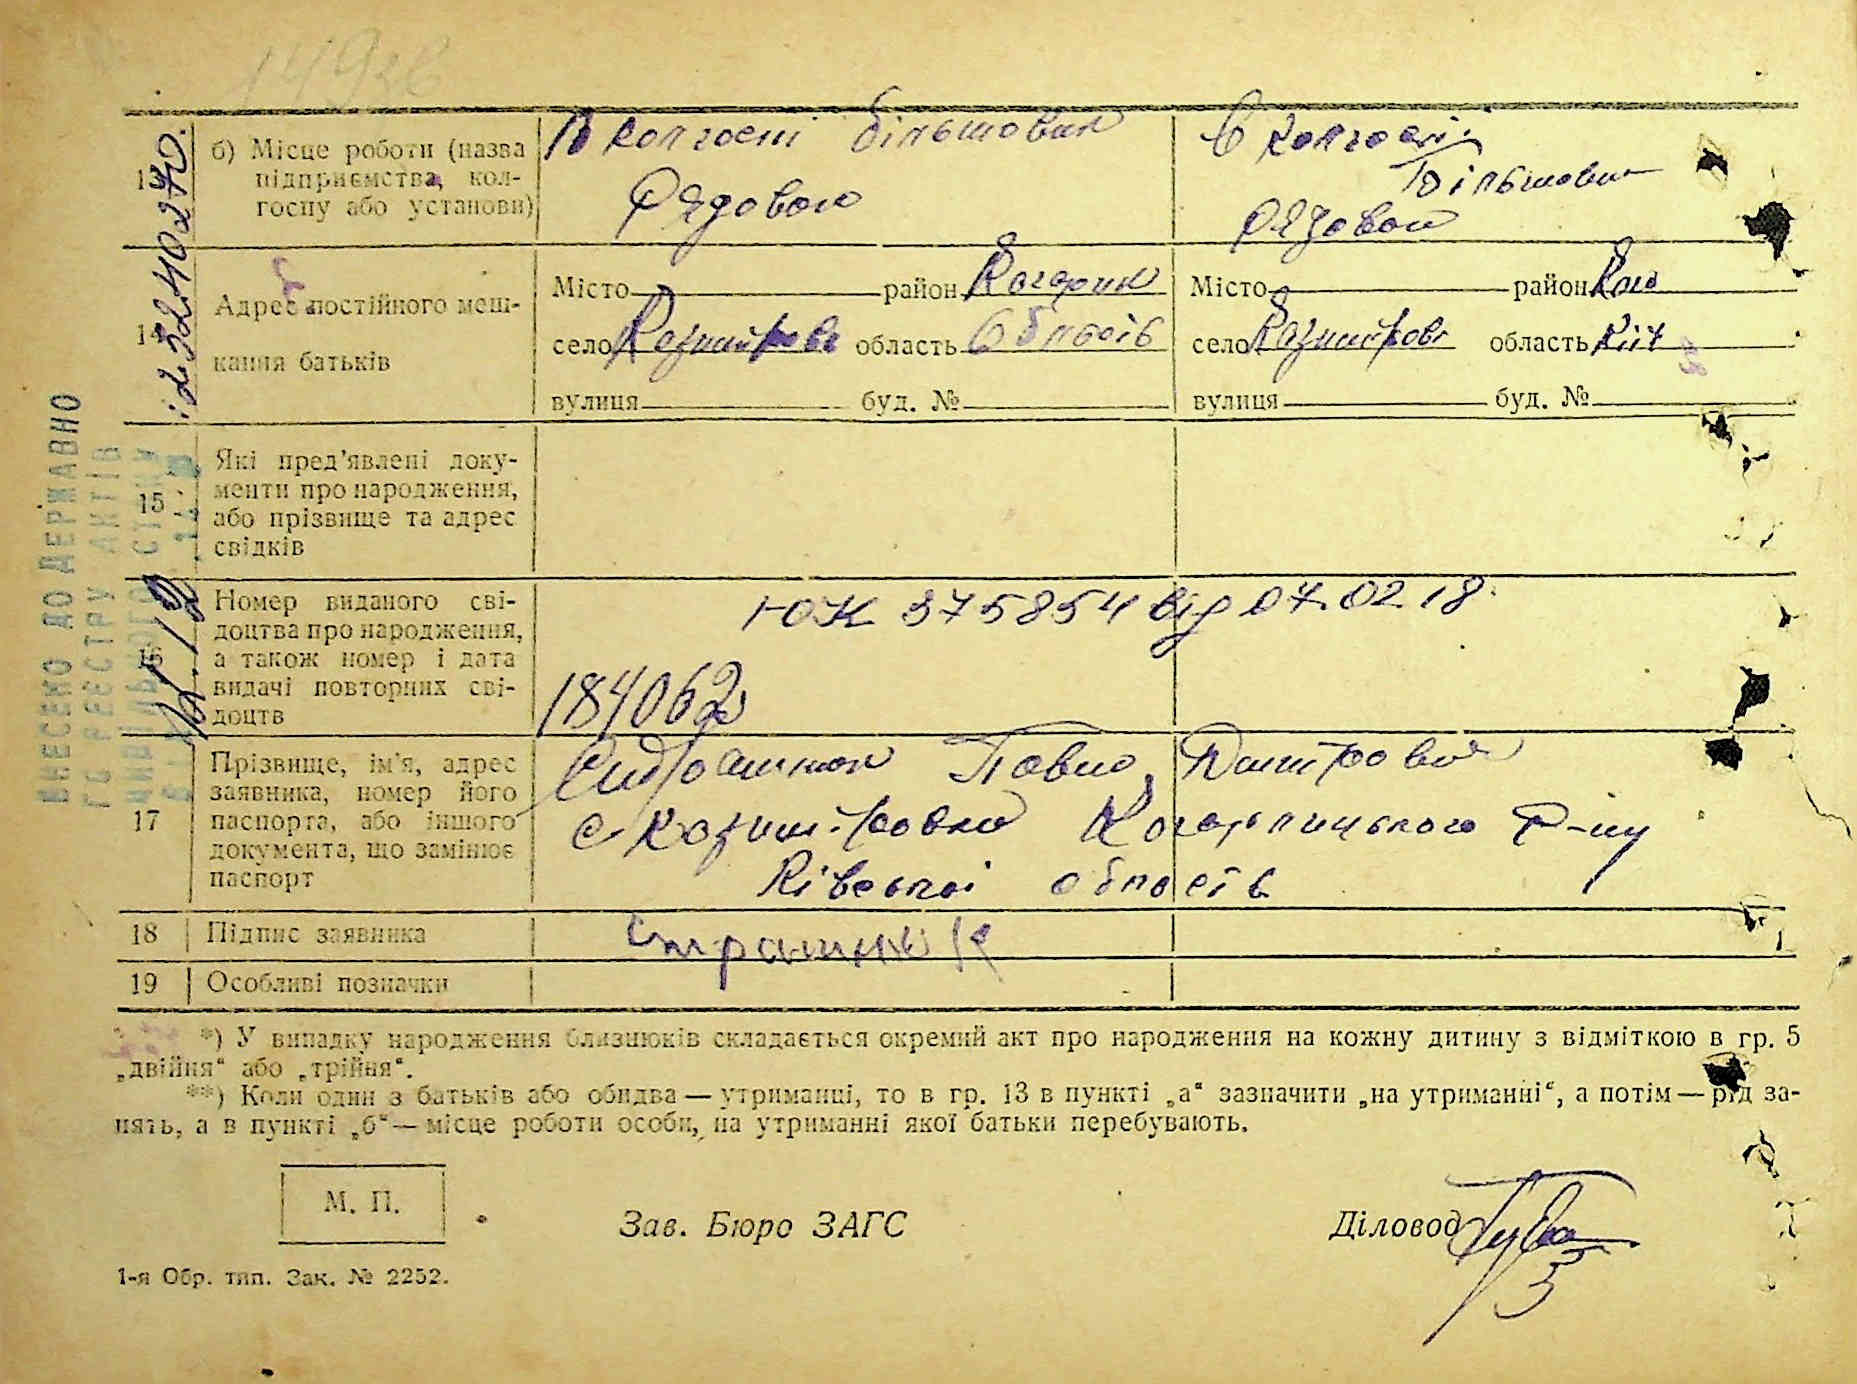 б) Місце роботи (назва підприємства, колгоспу або установи)
В колгоспі більшовик
Рядовою
в колгоспі
Більшовик
Рядовой
14 Адрес постійного мешкання батьків
Місто район Кагарлик
село область Області
вулиця буд. №
Місто район Каг
село область Киї
вулиця буд. №
15 Які пред'явлені документи про народження, або прізвище та адрес свідків
16 Номер виданого свідоцтва про народження, а також номер і дата видачі повторних свідоцтв
ЮК 375854 від 07.02.18
184062
17 Прізвище, ім'я, адрес заявника, номер його паспорта, або іншого документа, що замінює паспорт
Павло Дмитрович
с. Кагарлицького р-ну
Ківської області
18 Підпис заявника
19 Особливі позначки
*) У випадку народження близнюків складається окремий акт про народження на кожну дитину з відміткою в гр. 5
„двійня“ або „трійня“.
**) Коли один з батьків або обидва — утриманці, то в гр. 13 в пункті „а“ зазначити „на утриманні“, а потім — рід за-
нять, а в пункті „б“ — місце роботи особи, на утриманні якої батьки перебувають.
М. П.
Зав. Бюро ЗАГС
Діловод
1-я Обр. тип. Зак. № 2252.
ВНЕСЕНО ДО ДЕРЖАВНО
ГО РЕЄСТРУ АКТІВ
ЦИВІЛЬНОГО СТАНУ